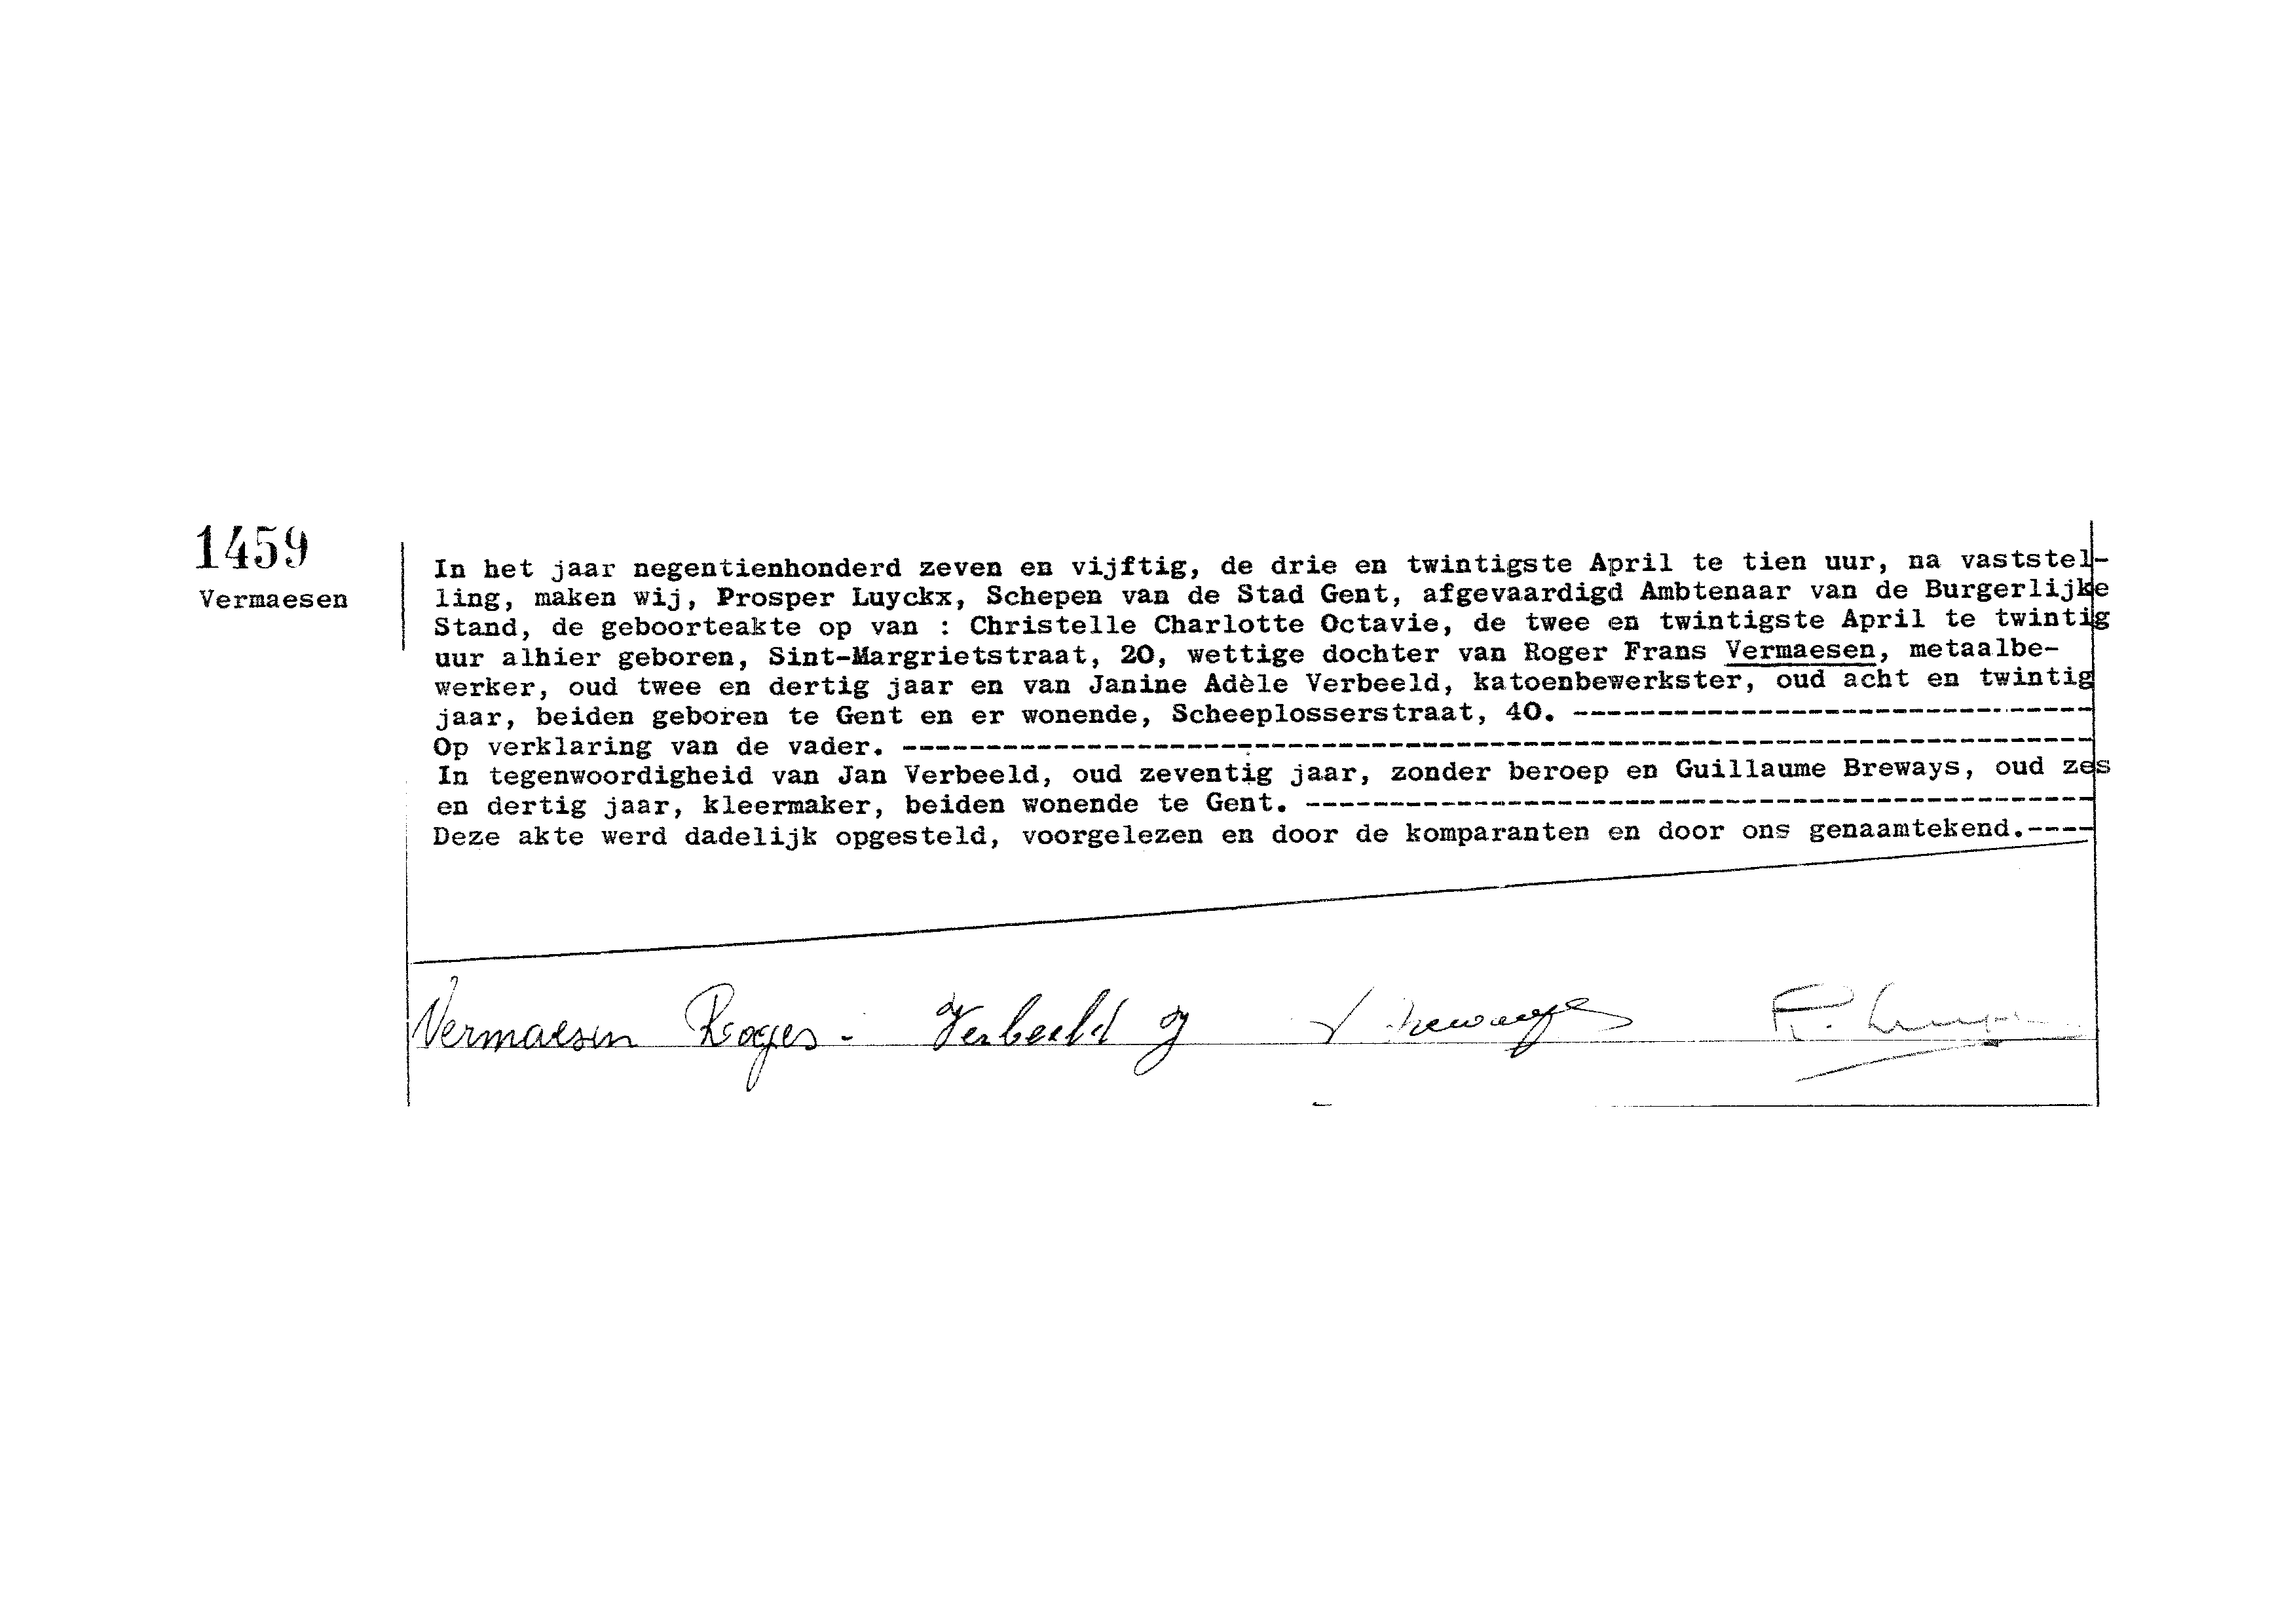 1459
Vermaesen
In het jaar negentienhonderd zeven en vijftig, de drie en twintigste April te tien uur, na vaststel-
ling, maken wij, Prosper Luyckx, Schepen van de Stad Gent, afgevaardigd Ambtenaar van de Burgerlijke
Stand, de geboorteakte op van : Christelle Charlotte Octavie, de twee en twintigste April te twintig
uur alhier geboren, Sint-Margrietstraat, 20, wettige dochter van Roger Frans Vermaesen, metaalbe-
werker, oud twee en dertig jaar en van Janine Adèle Verbeeld, katoenbewerkster, oud acht en twintig
jaar, beiden geboren te Gent en er wonende, Scheeplosserstraat, 40. -------------------------------
Op verklaring van de vader. -----------------------------------------------------------------------
In tegenwoordigheid van Jan Verbeeld, oud zeventig jaar, zonder beroep en Guillaume Breways, oud zes
en dertig jaar, kleermaker, beiden wonende te Gent. -----------------------------------------------
Deze akte werd dadelijk opgesteld, voorgelezen en door de komparanten en door ons genaamtekend.----
Vermaesen Roger - Verbeeld J